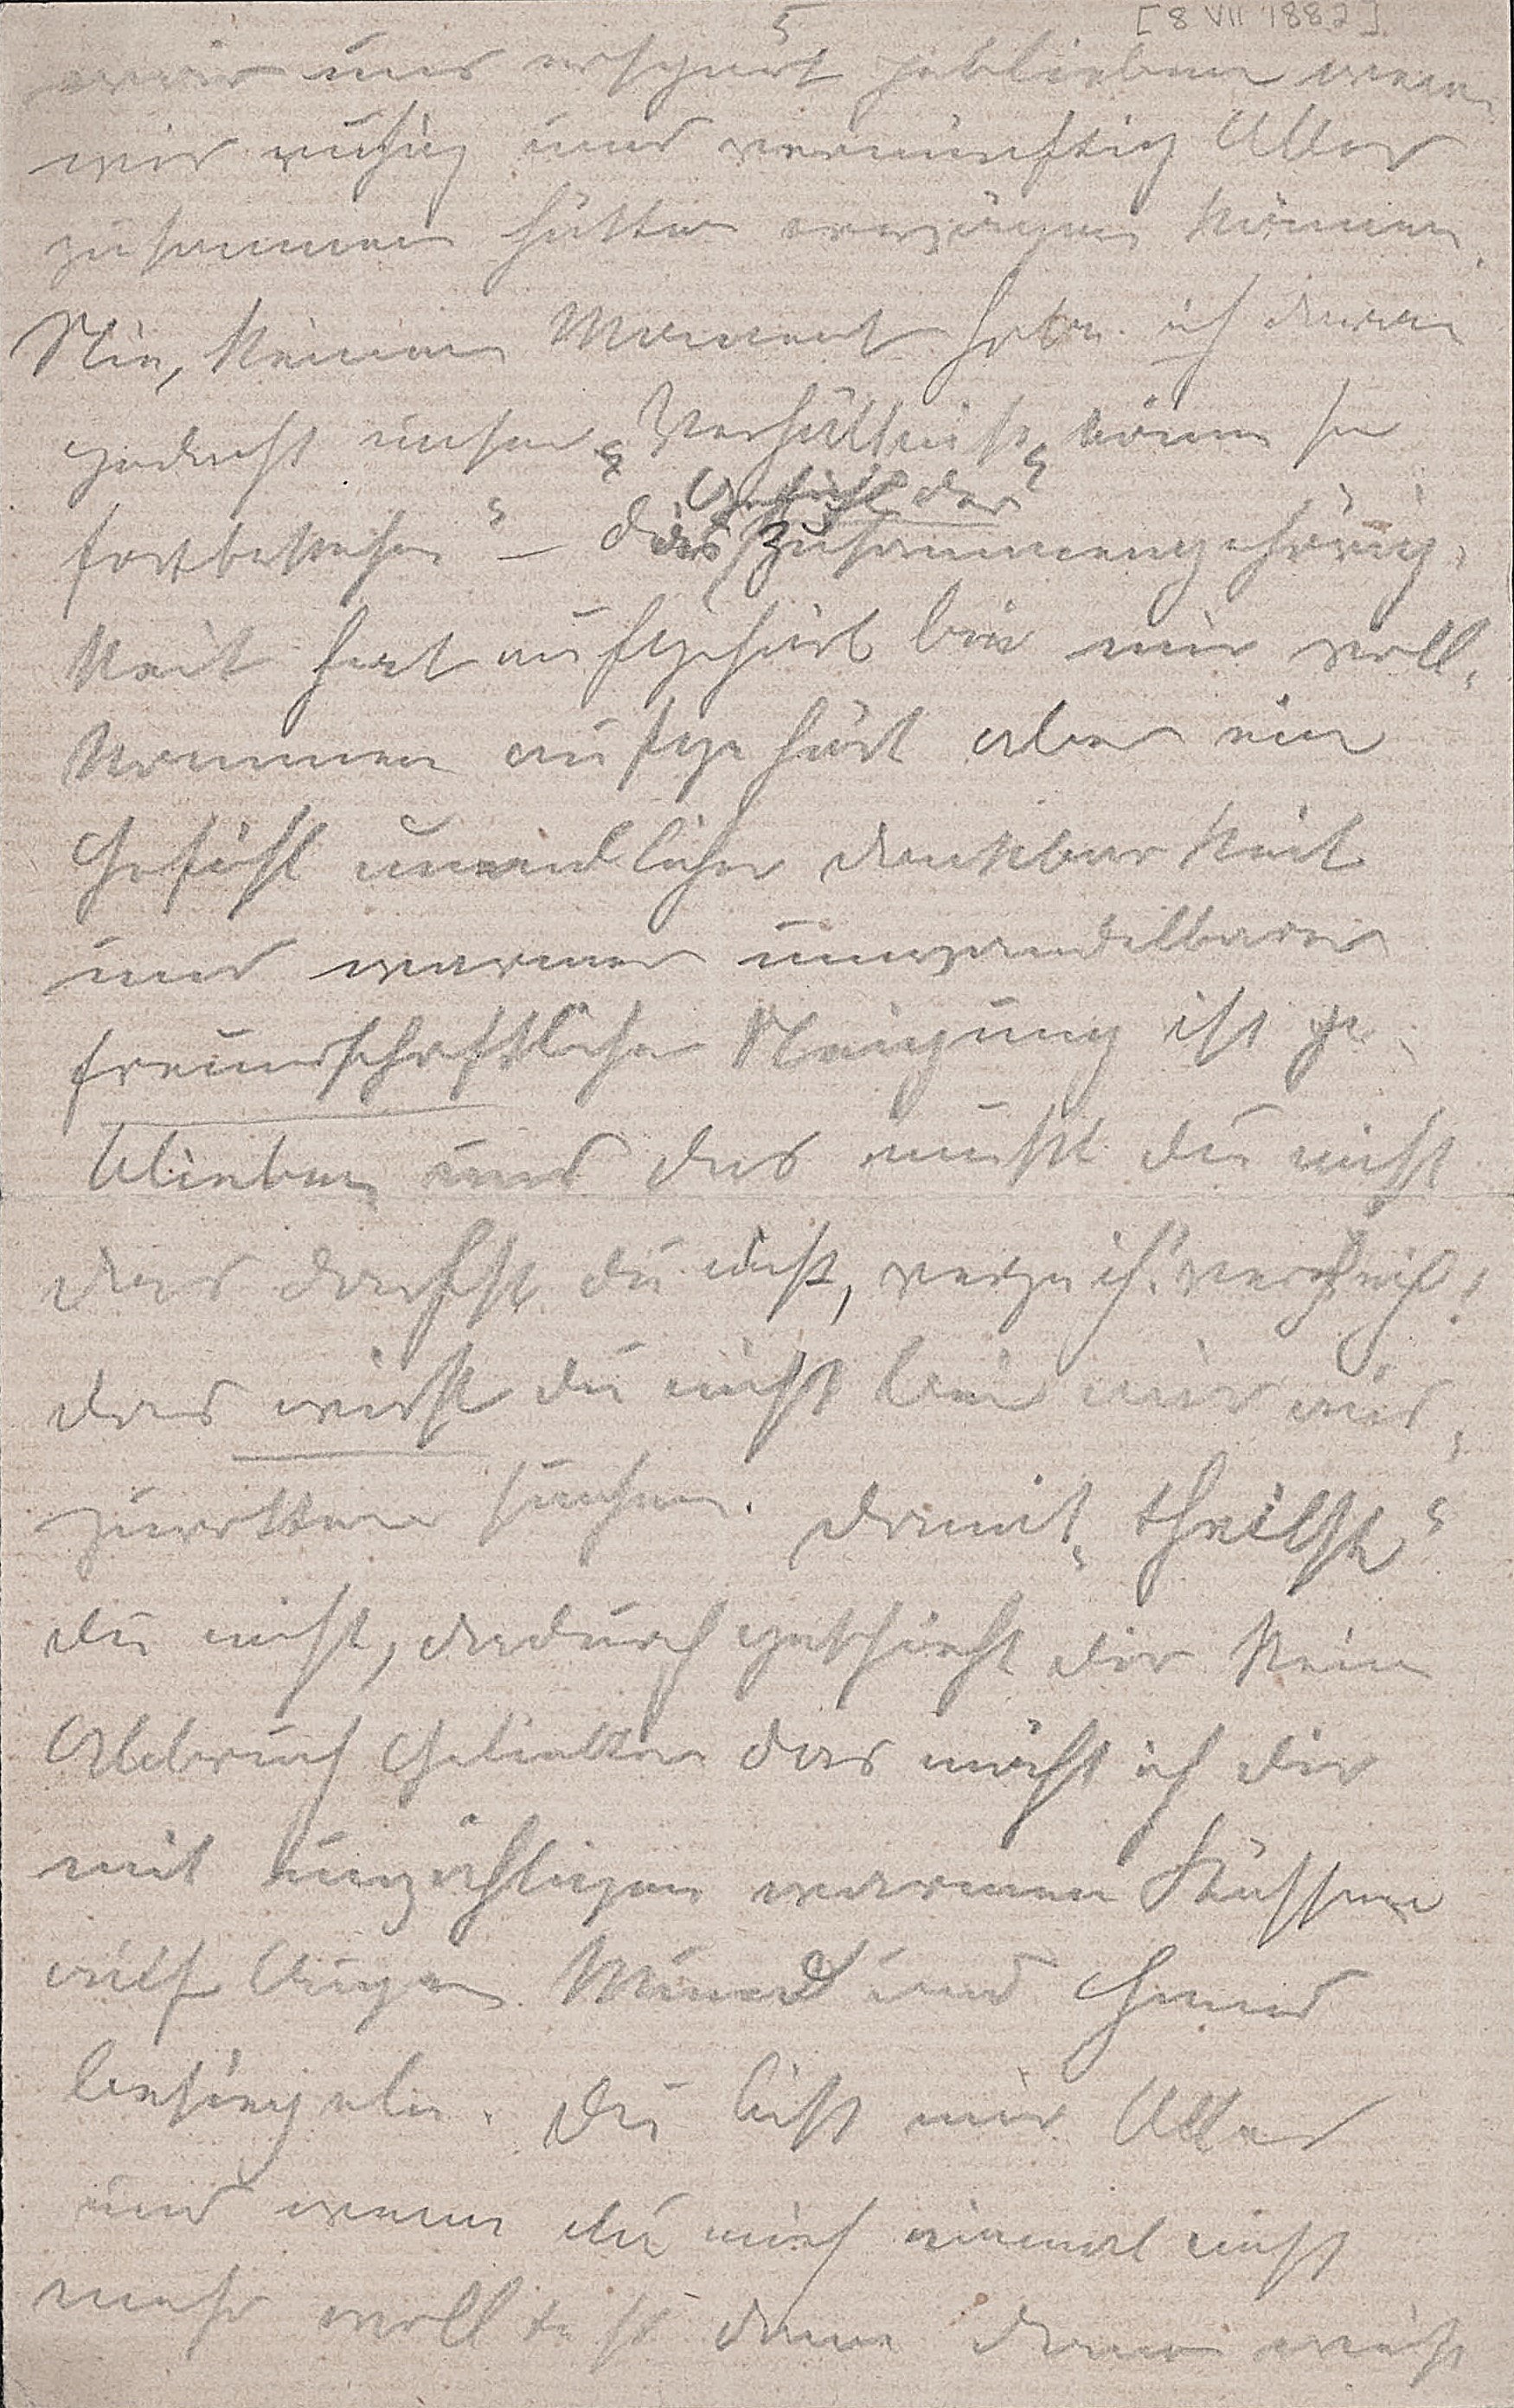 5
[8 VII 1882]
wäre uns erspart geblieben wenn
wir ruhig und vernünftig Alles
zusammen hätten erwägen können.
Nie, keinen Moment habe ich daran
gedacht unser „Verhältniß könne so
fortbestehen“ – das Gefühl der Zusammengehörig-
keit hat aufgehört bei mir voll-
kommen aufgehört aber ein
Gefühl unendlicher Dankbarkeit
und warmer unwandelbarer
freundschaftlicher Neigung ist ge-
blieben und das mußt du nicht
das darfst du nicht, verzeih! verzeih!
das wirst du nicht bei mir aus-
zurotten suchen. Damit „theilst“
du nicht, dadurch geschieht dir kein
Abbruch Geliebter das möcht ich dir
mit unzähligen warmen Küssen
auf Augen Mund und Hand
besiegeln. Du bist mir Alles
und wenn du mich einmal nicht
mehr wolltest dann dann nicht